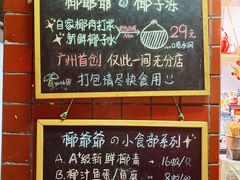 椰爷爷の椰子冻
自家椰肉打浆
新鲜椰子水
29元
广州首创 仅此一间无分店
打包请尽快食用
椰爷爷の小食部系列
A. A⁺级新鲜椰青
B. 椰汁鱼蛋/鱼腐